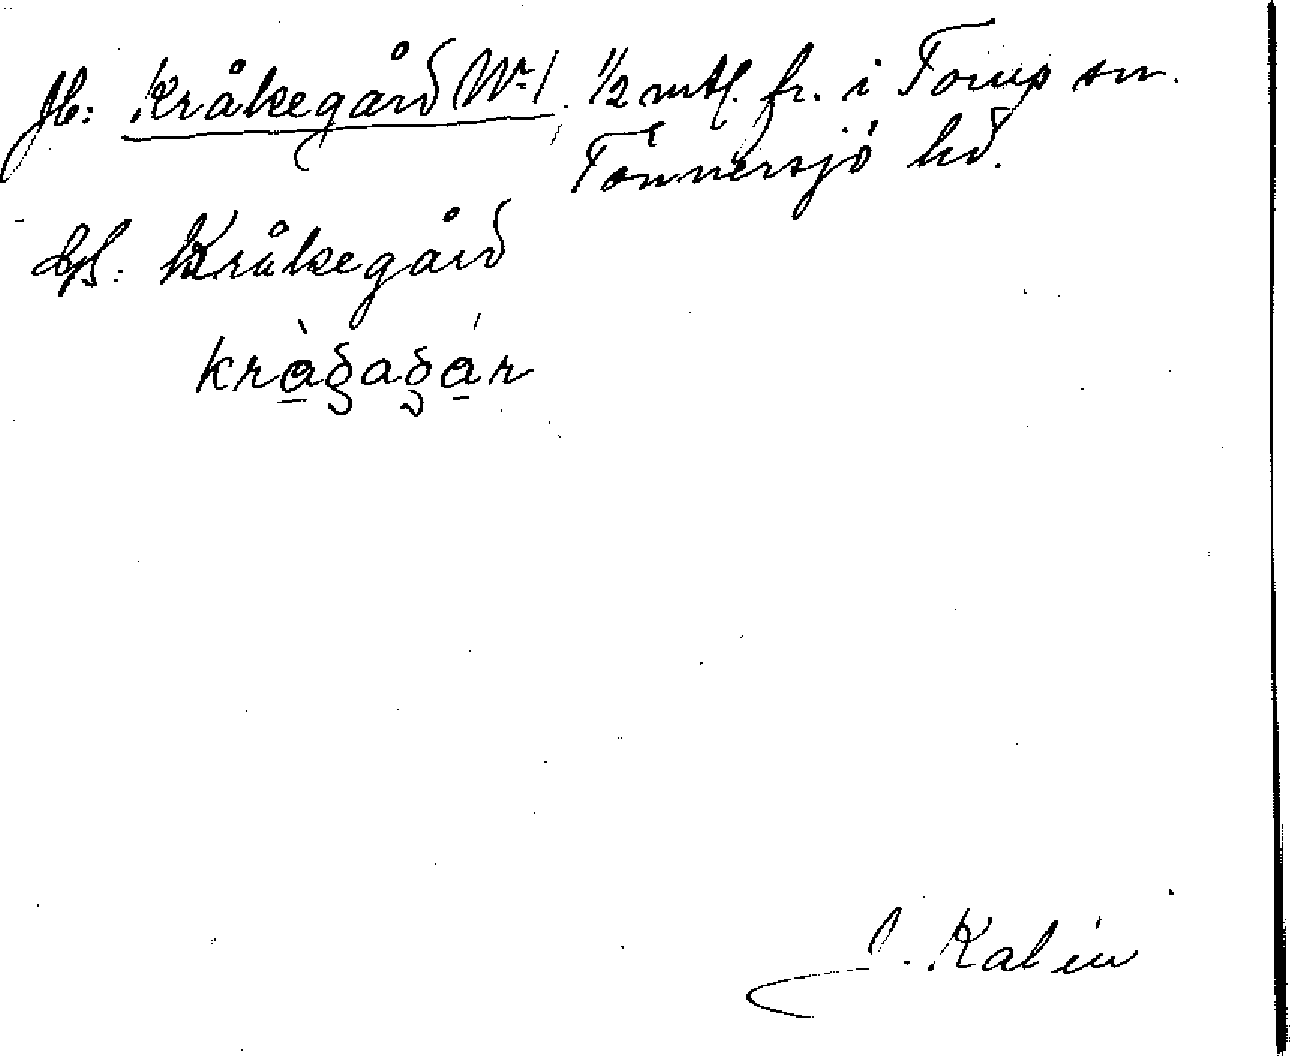 Jb: Kråkegård Nr 1. 1/2 mtl. fr. i Torup sn.
Tönnersjö hd.
Kråkegård
kràgagár
J. Kalén